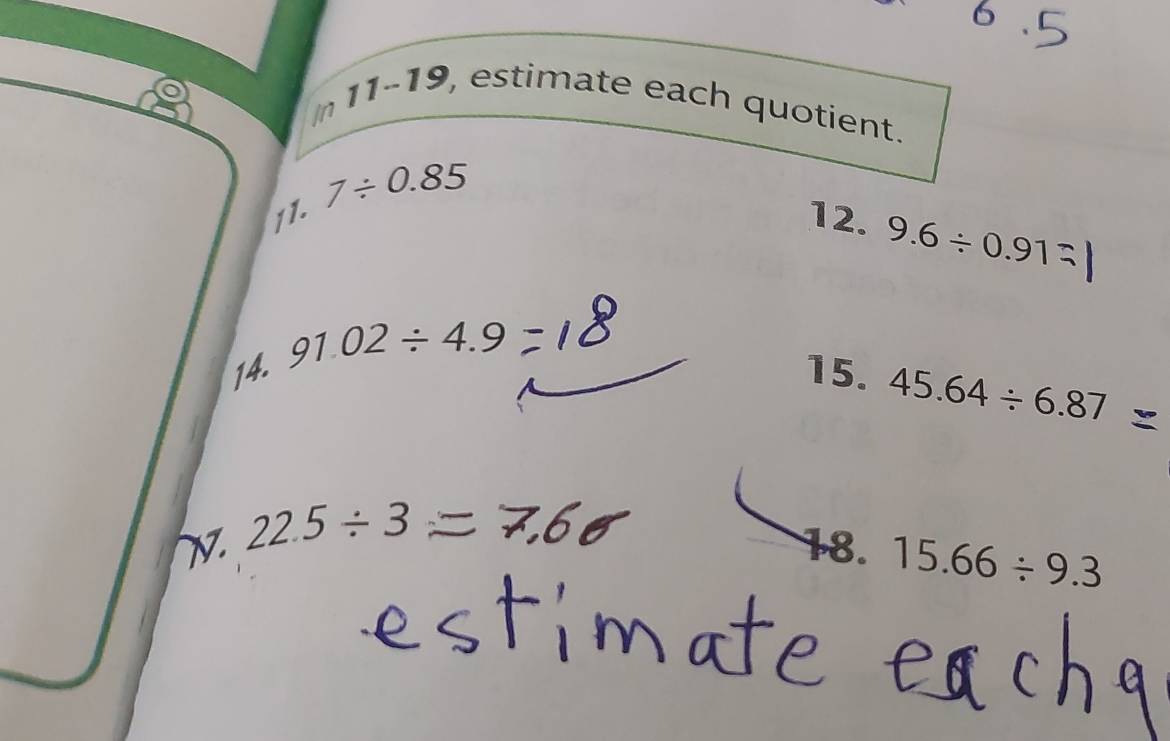 6.5
In 11-19, estimate each quotient.
11. 7 ÷ 0.85
12. 9.6 ÷ 0.91 = 1
14. 91.02 ÷ 4.9 = 18
15. 45.64 ÷ 6.87 =
17. 22.5 ÷ 3 = 7.6
18. 15.66 ÷ 9.3
estimate each q